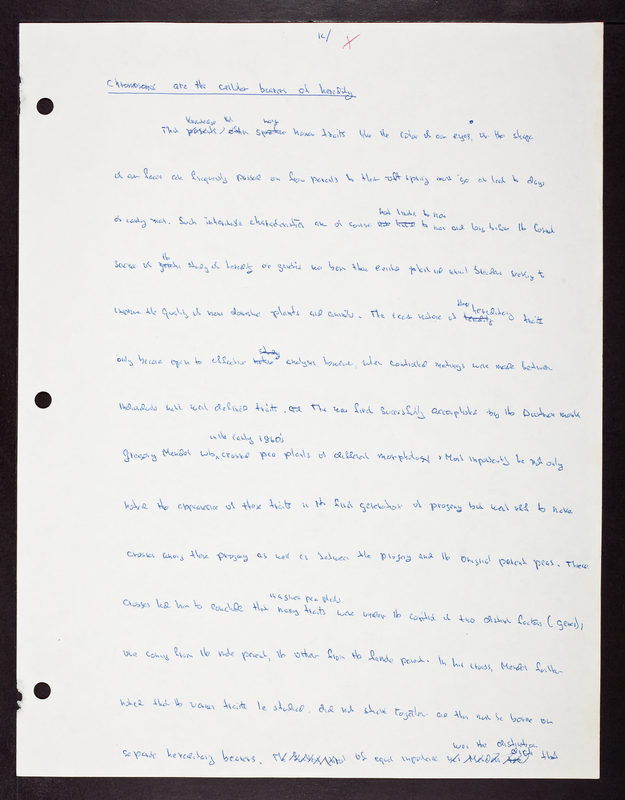 Chromosomes are the cellular bearers of heredity
Knowledge that many
That human traits like the color of our eyes, or the shape
of our faces are frequently passed on from parents to their offspring must go on back to days
of early man. Such inheritable characteristics are of course to man and long before the formal
science of the study of heredity or genetics was born
improve the quality of domestic plants and animals. The exact nature of hereditary traits
only became open to effective analysis however, when controlled matings were made between
individuals with well defined traits. The was first successfully accomplished by the monk
in the early 1860's
Gregory Mendel who crossed pea plants of different morphology. Most importantly he not only
noted the appearance of these traits in the first generation of progeny but went on to make
crosses among these progeny as well as between the progeny and the original parent peas. These
in a given pea plant
crosses led him to conclude that many traits were under the control of two distinct factors (genes),
one coming from the male parent, the other from the female parent. In his crosses, Mendel further
noted that the various traits he studied did not stick together and thus must be borne on
was the distinction
separate hereditary bearers. Of equal importance that